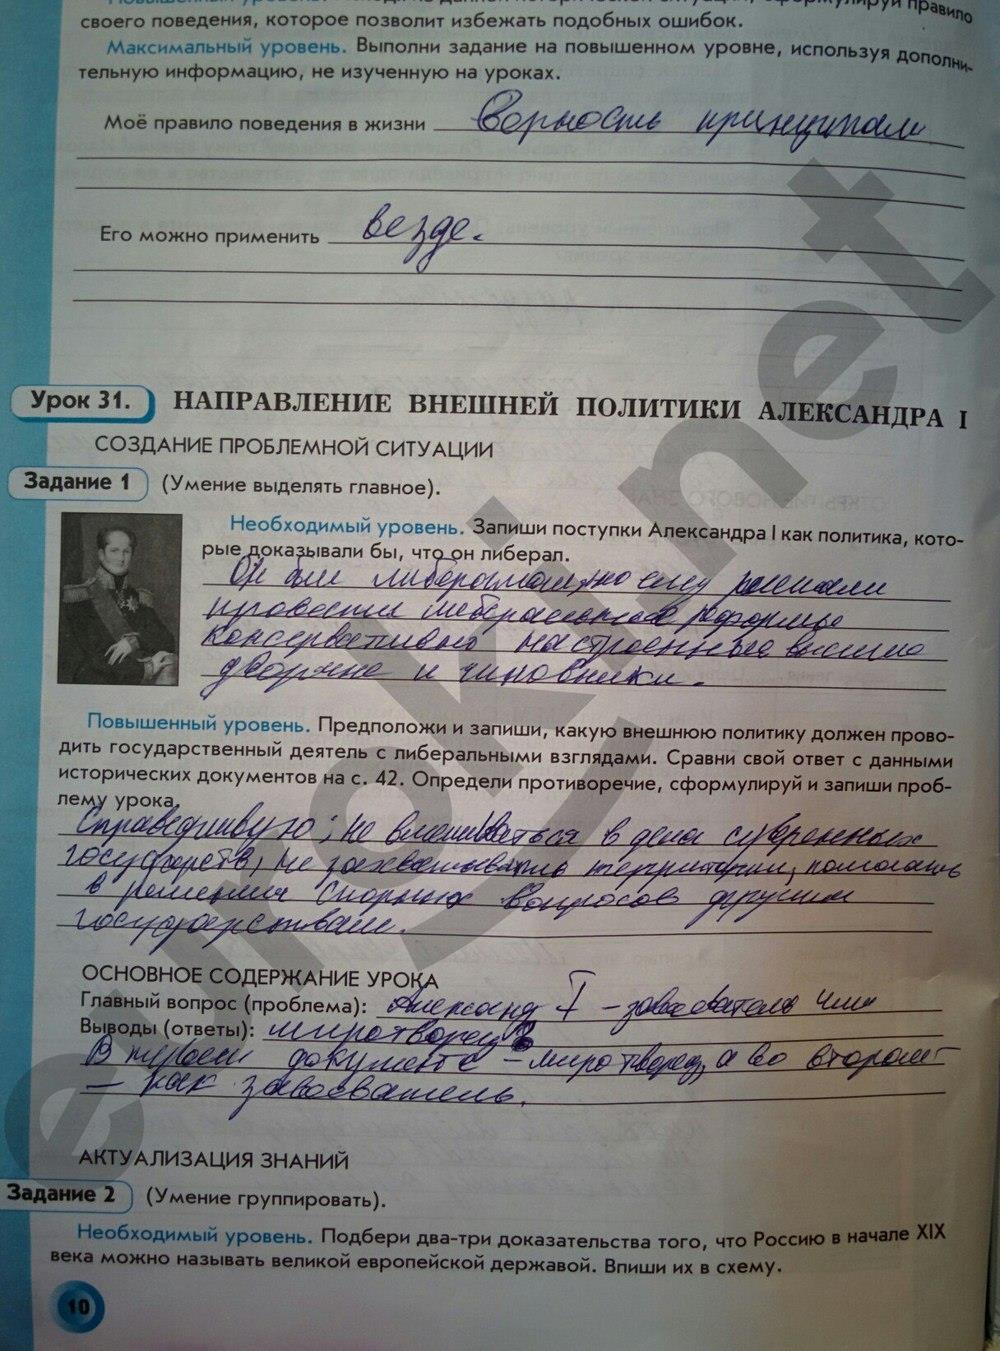 своего поведения, которое позволит избежать подобных ошибок.
Максимальный уровень. Выполни задание на повышенном уровне, используя дополни-
тельную информацию, не изученную на уроках.
Моё правило поведения в жизни Верность принципам
Его можно применить везде.
Урок 31. НАПРАВЛЕНИЕ ВНЕШНЕЙ ПОЛИТИКИ АЛЕКСАНДРА I
СОЗДАНИЕ ПРОБЛЕМНОЙ СИТУАЦИИ
Задание 1 (Умение выделять главное).
Необходимый уровень. Запиши поступки Александра I как политика, кото-
рые доказывали бы, что он либерал.
Он был либералом, но ему мешали
провести либеральные реформы
консервативно настроенные высшие
дворяне и чиновники.
Повышенный уровень. Предположи и запиши, какую внешнюю политику должен прово-
дить государственный деятель с либеральными взглядами. Сравни свой ответ с данными
исторических документов на с. 42. Определи противоречие, сформулируй и запиши проб-
лему урока.
Справедливую; не вмешиваться в дела суверенных
государств, не захватывать территории, помогать
в решении спорных вопросов другим
государствам.
ОСНОВНОЕ СОДЕРЖАНИЕ УРОКА
Главный вопрос (проблема): Александр I – завоеватель или
Выводы (ответы): миротворец?
В первом документе – миротворец, а во втором
– как завоеватель.
АКТУАЛИЗАЦИЯ ЗНАНИЙ
Задание 2 (Умение группировать).
Необходимый уровень. Подбери два-три доказательства того, что Россию в начале XIX
века можно называть великой европейской державой. Впиши их в схему.
10
eurokinet